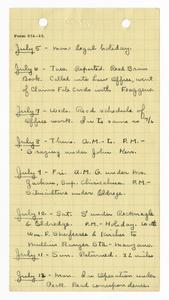 Form 874-15.
July 5 - Mon. Legal holiday.
July 6 - Tues. Reported. Read Bonus
Book. Called into Lew's Office, went
of Claims File Cards with
July 7 - Weds. Read schedule of
office work. Due to same to 7/6
July 8 - Thurs. A.M. - to P.M. -
Grazing under John Kerr.
July 9 - Fri. A.M. G. under Mr.
Jackson, Sup. Chiricahua. P.M. -
Silviculture under
July 10 - Sat. S' under Rectangle
& Eldredge. P.M. - Holiday. to
Wm. F. & Kircher to
Ranger Sta. - Manzano.
July 11 - Sun. Returned. - 32 miles
July 12 - Mon. In Operation under
Park. Read correspondences.